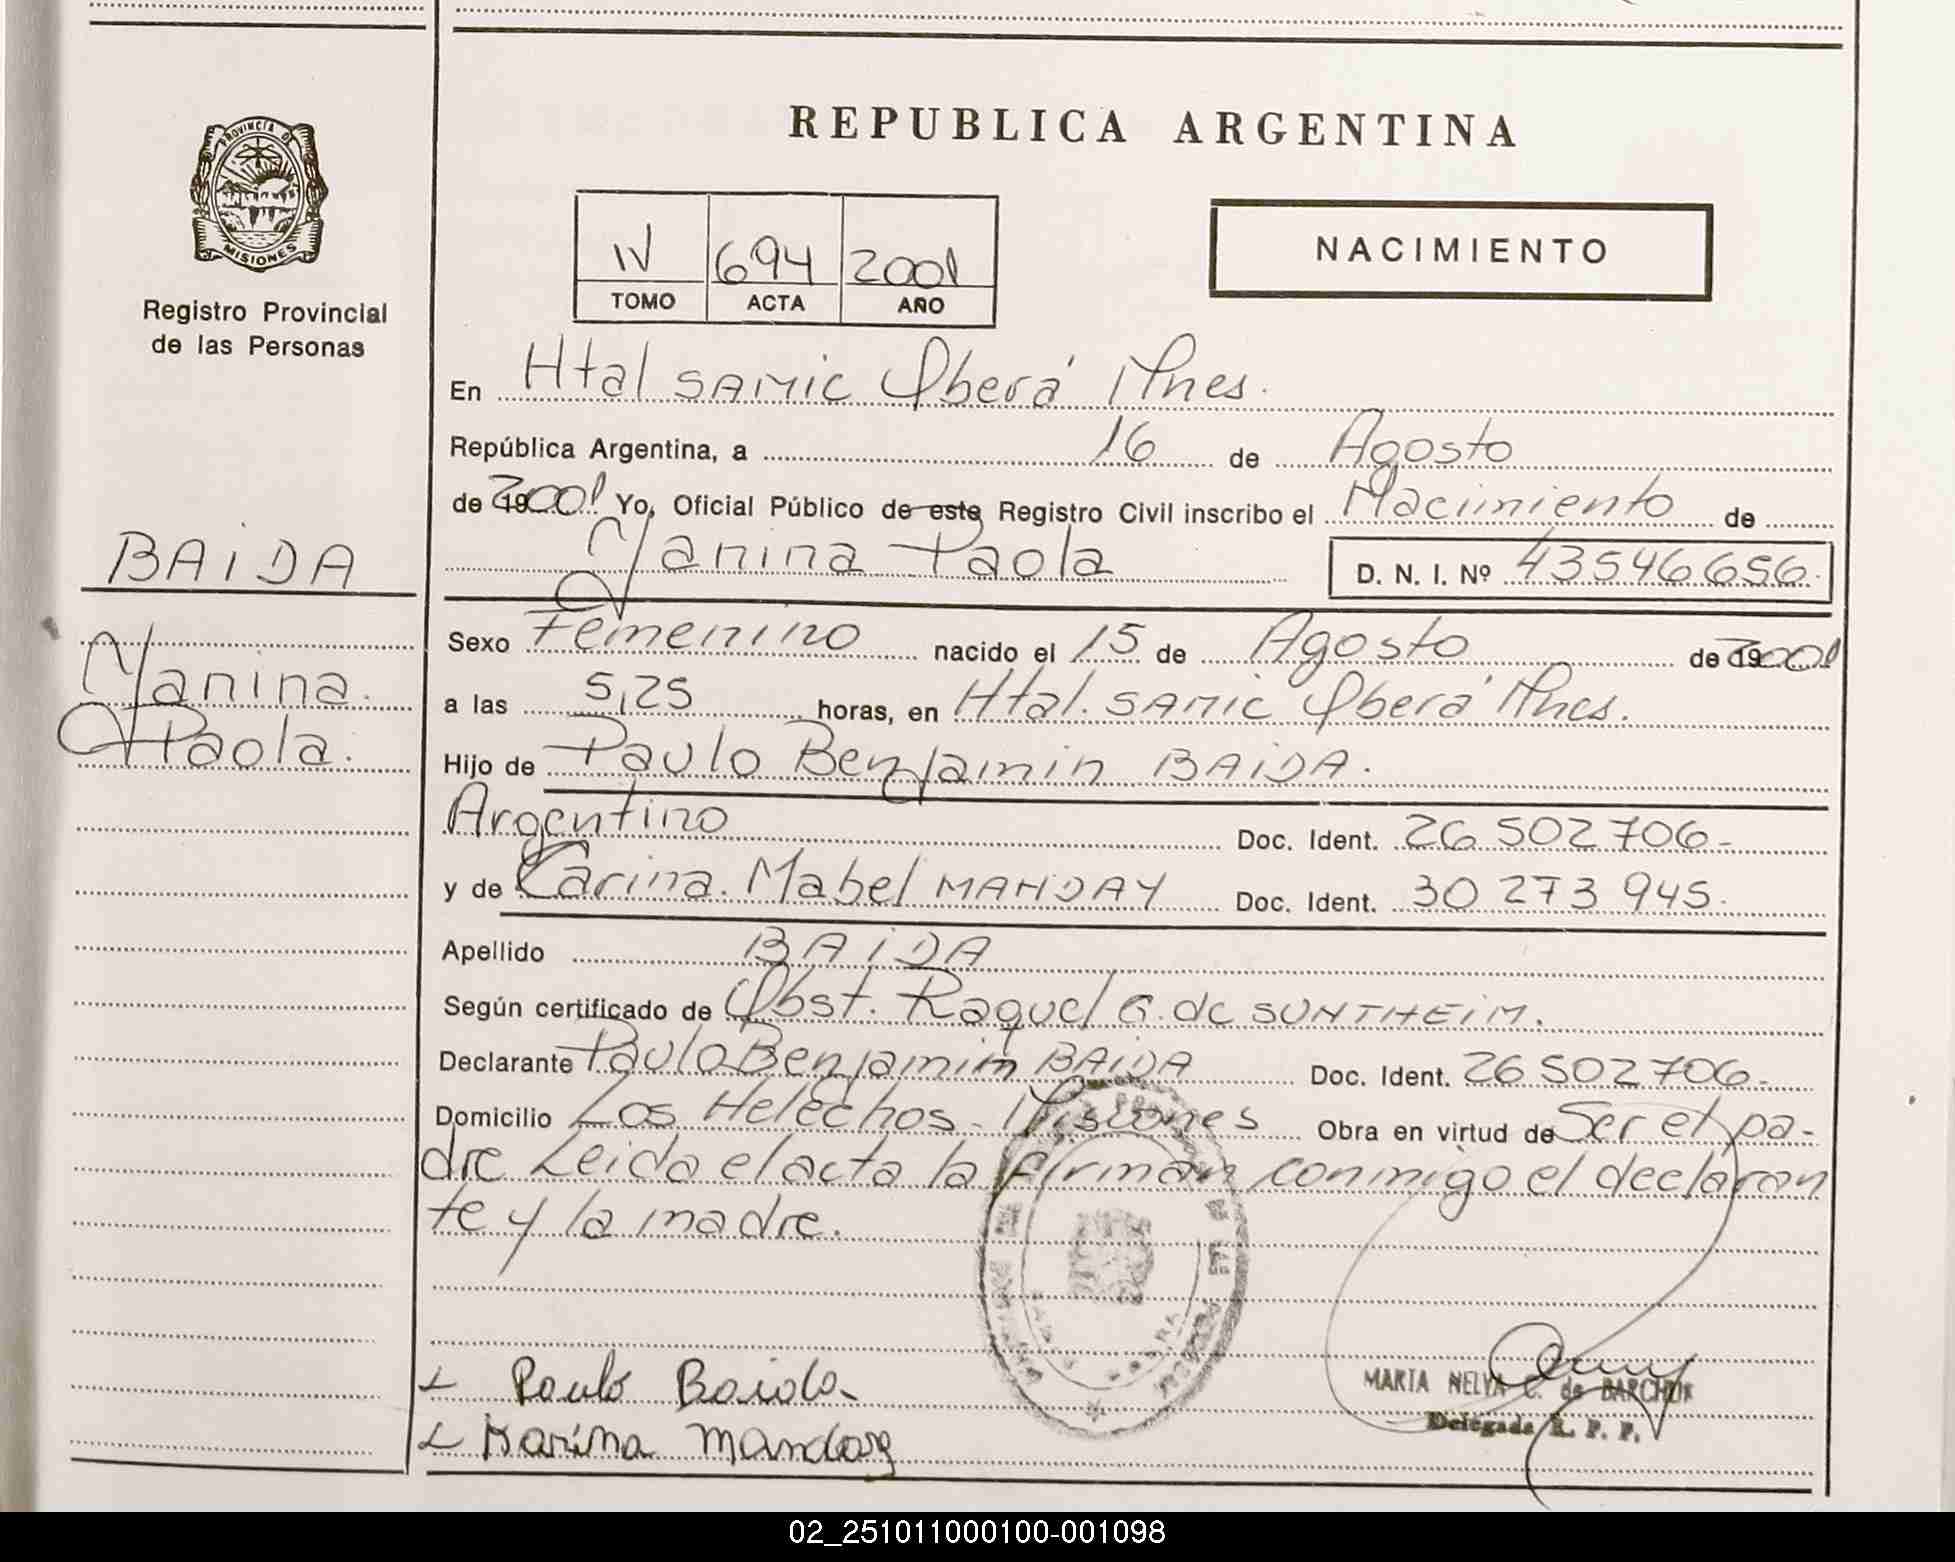 PROVINCIA DE
MISIONES
Registro Provincial
de las Personas
BAIDA
Yanina
Paola.
REPUBLICA ARGENTINA
IV 694 2001
TOMO ACTA AÑO
NACIMIENTO
En Htal SAMIC Oberá Mnes.
República Argentina, a 16 de Agosto
de 2001 Yo, Oficial Público de este Registro Civil inscribo el Nacimiento de
Yanina Paola D. N. I. Nº 43546656.
Sexo Femenino nacido el 15 de Agosto de 2001
a las 5,25 horas, en Htal. SAMIC Oberá Mnes.
Hijo de Paulo Benjamin BAIDA.
Argentino Doc. Ident. 26 502 706-
y de Carina Mabel MANDAY Doc. Ident. 30 273 945.
Apellido BAIDA
Según certificado de Obst. Raquel G. de SUNTHEIM.
Declarante Paulo Benjamin BAIDA Doc. Ident. 26 502 706-
Domicilio Los Helechos - Misiones Obra en virtud de Ser el pa-
dre Leida el acta la firman conmigo el declaran
te y la madre.
Paulo Baida
Karina Manday
MARTA NELVA C. de BARCHUK
Delegada R. P. P.
02_251011000100-001098